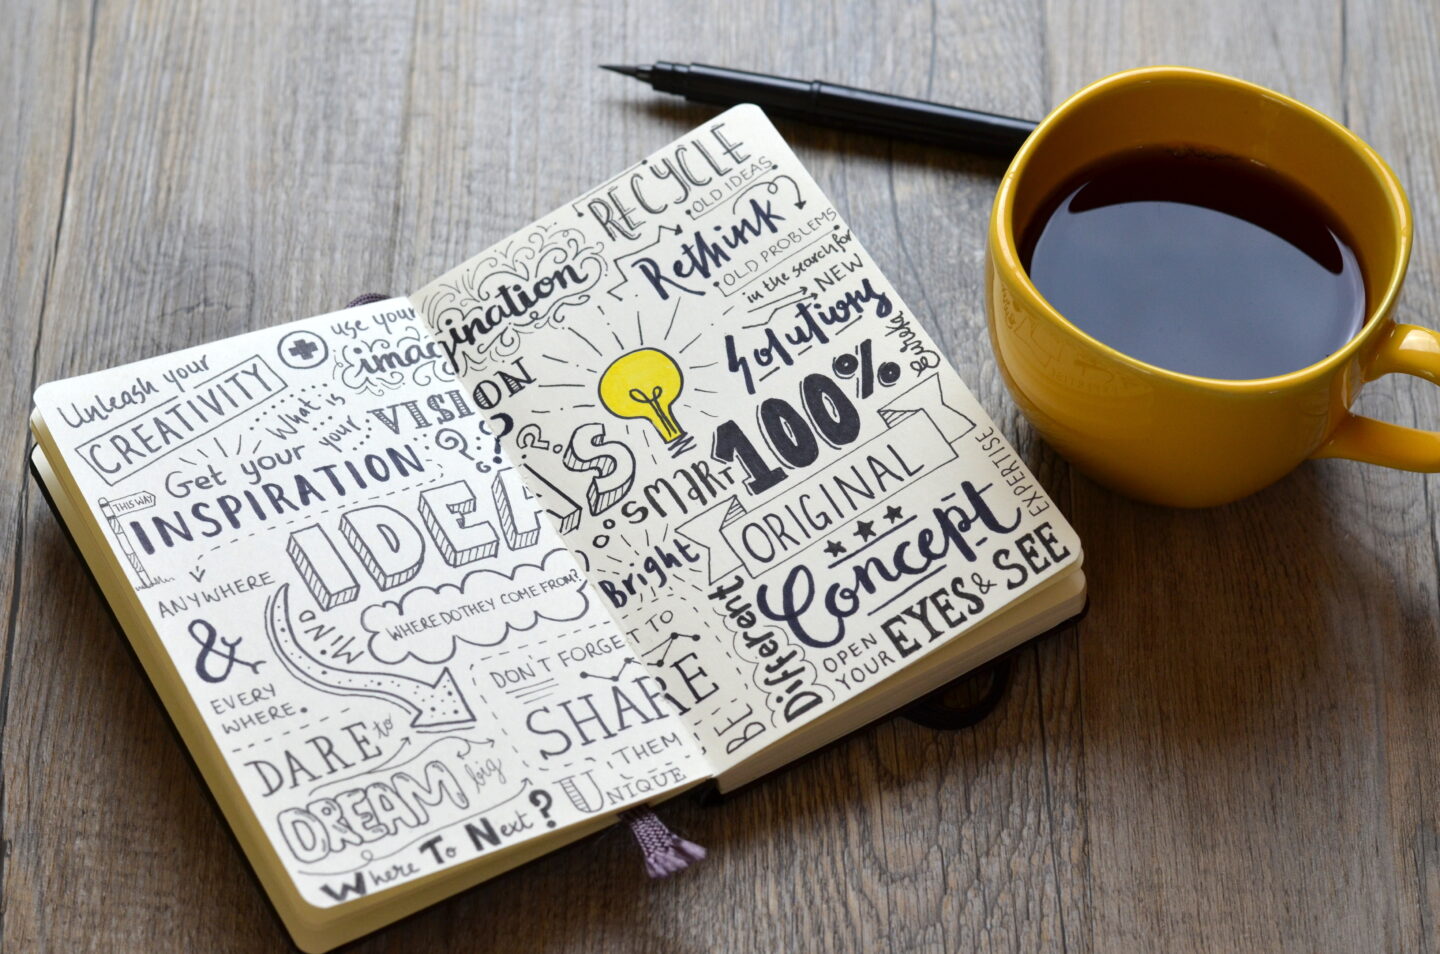 Unleash your
CREATIVITY
use your
imagination
What is
your VISION
??
Get your
INSPIRATION
THIS WAY
ANYWHERE
&
EVERY
WHERE.
IDEAS
MIND
WHERE DO THEY COME FROM?
DON'T FORGET TO
SHARE
THEM
UNIQUE
DARE to
DREAM big
Where To Next?
RECYCLE
OLD IDEAS
Rethink
OLD PROBLEMS
in the search for
NEW
Solutions
Eureka
100%
SMART
ORIGINAL
Bright
Concept
EXPERTISE
BE Different
OPEN
YOUR EYES & SEE